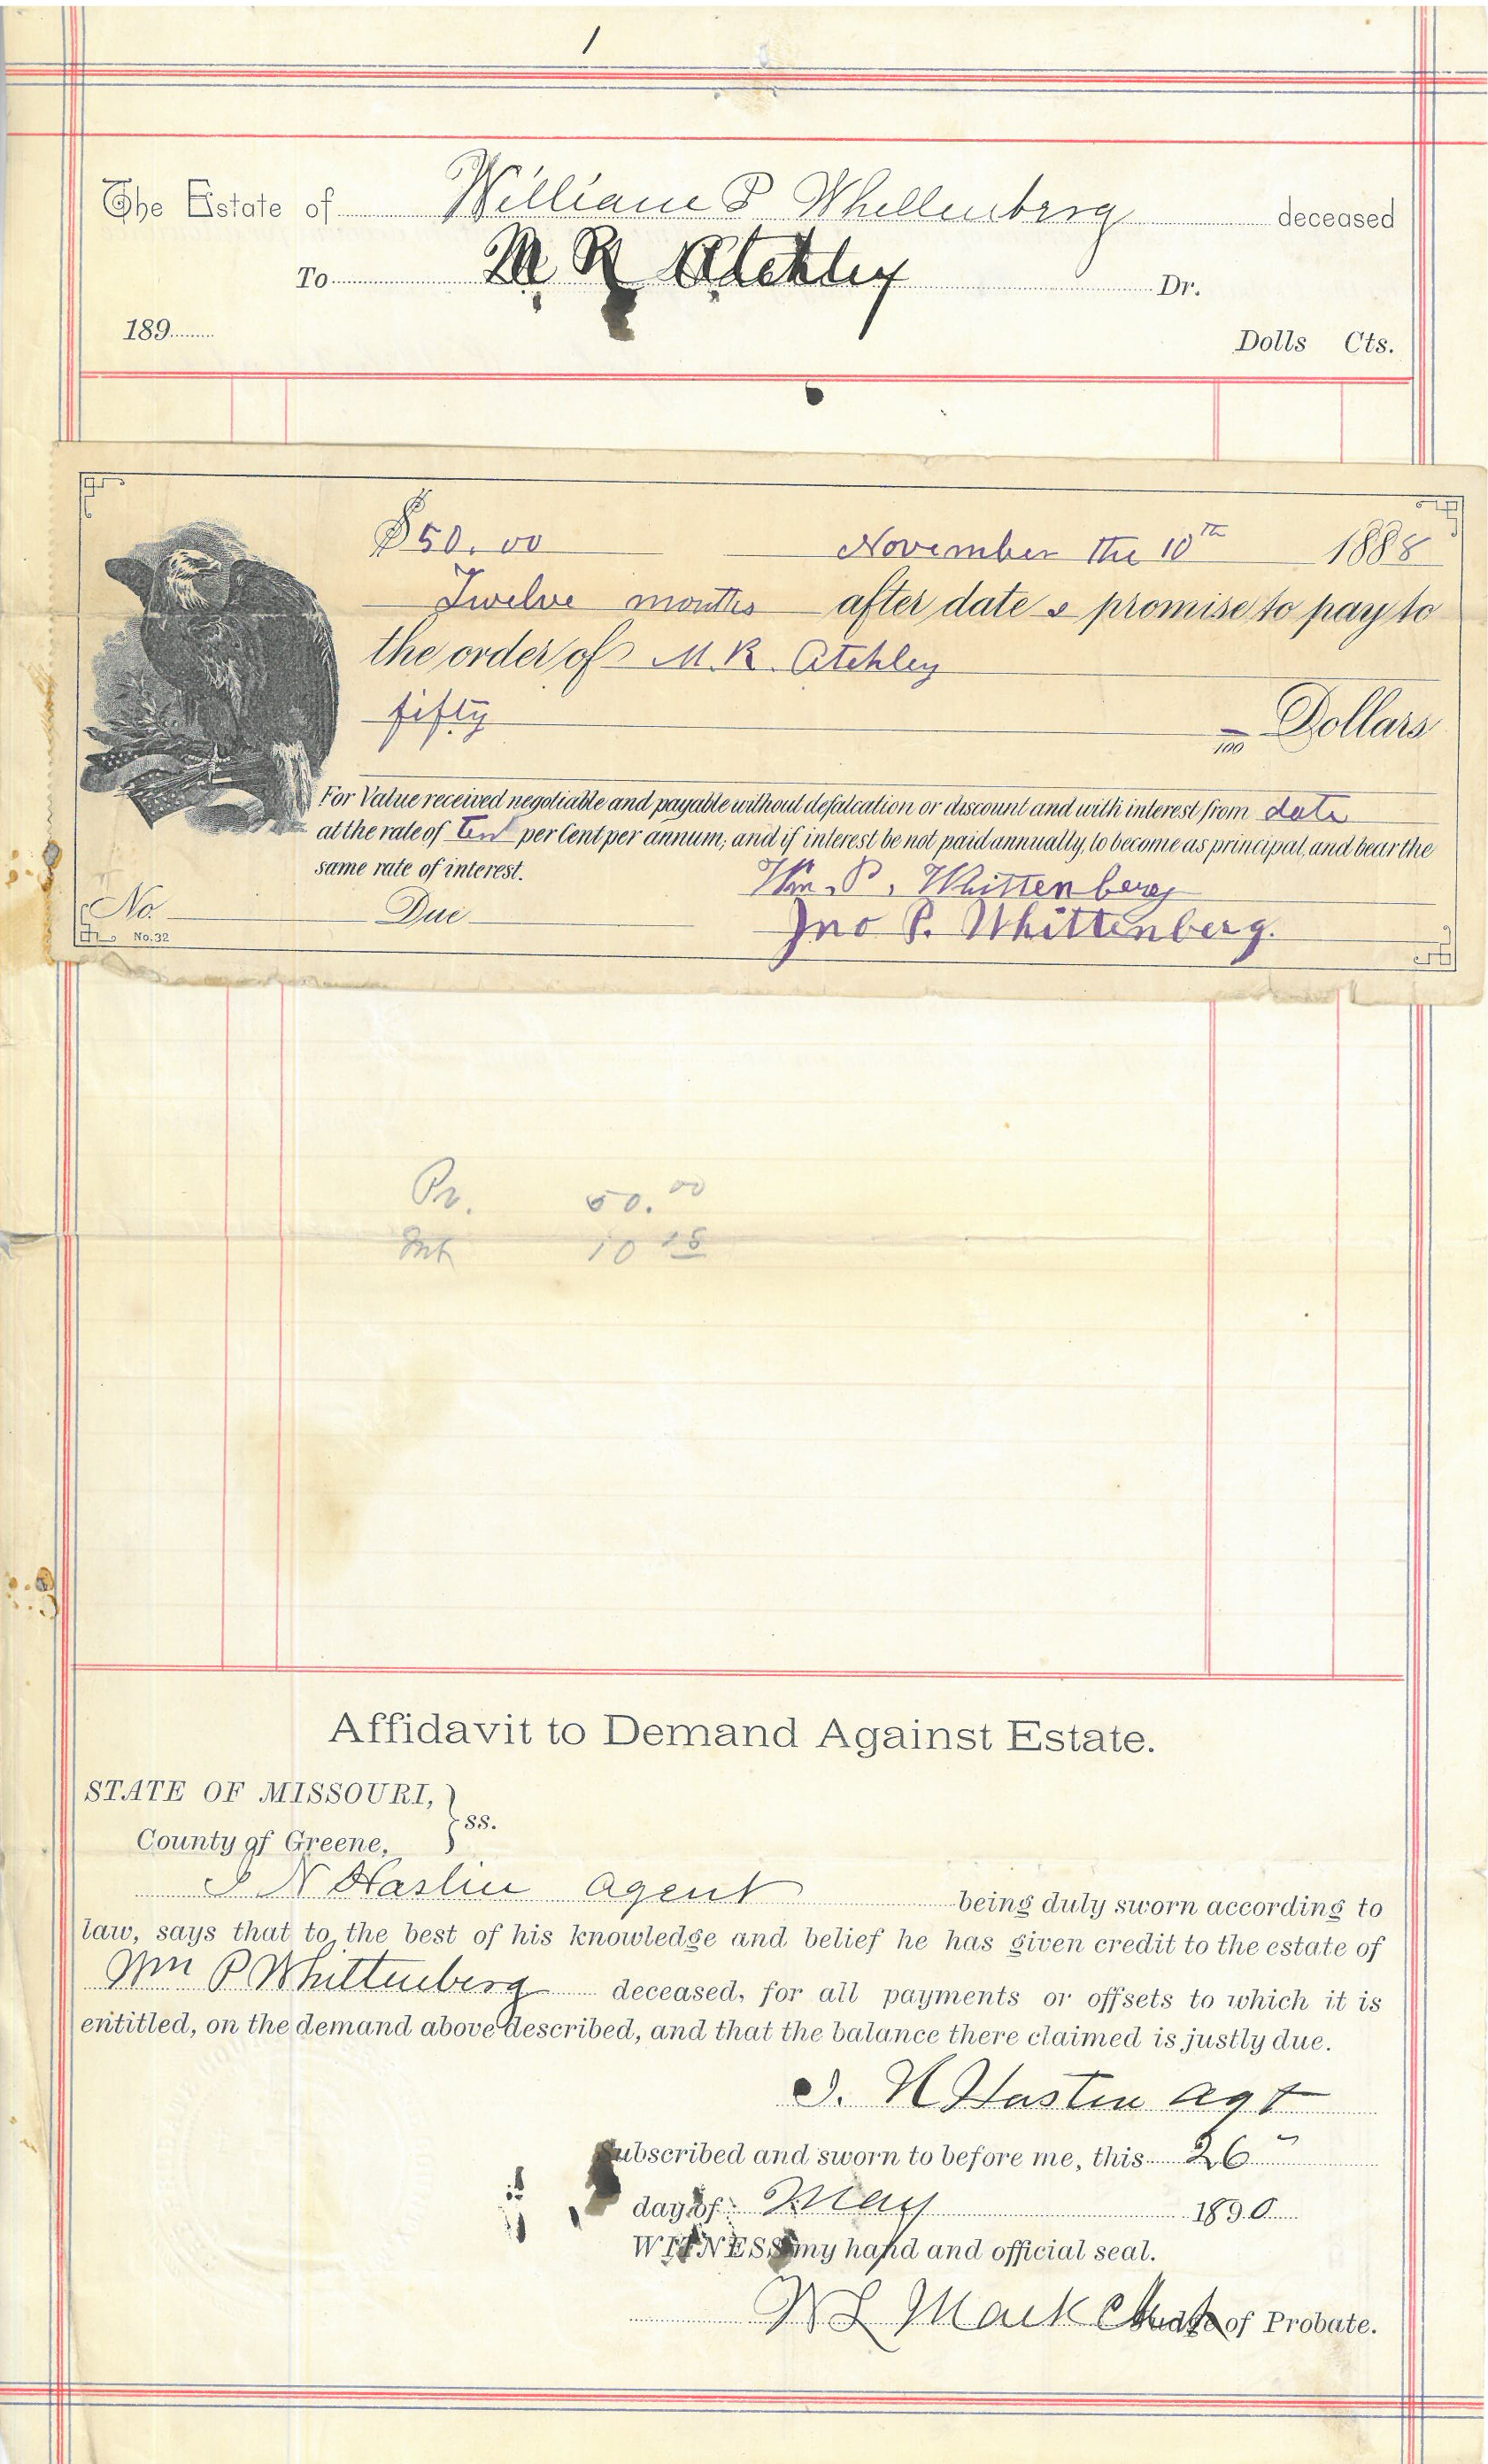 1
The Estate of William P Whettenberg deceased
To M R Atchley Dr.
189
Dolls Cts.
$50.00 November the 10th 1888
Twelve months after date I promise to pay to
the order of M. R. Atchley
fifty
100 Dollars
For Value received negotiable and payable without defalcation or discount and with interest from date
at the rate of Ten per Cent per annum, and if interest be not paid annually, to become as principal, and bear the
same rate of interest.
Wm. P. Whittenberg
No. Due
Jno P. Whittenberg.
No. 32
Pr. 50.00
Int 10
Affidavit to Demand Against Estate.
STATE OF MISSOURI,
ss.
County of Greene,
N agent being duly sworn according to
law, says that to the best of his knowledge and belief he has given credit to the estate of
Wm P Whittenberg deceased, for all payments or offsets to which it is
entitled, on the demand above described, and that the balance there claimed is justly due.
N agt
Subscribed and sworn to before me, this 26
day of May 1890
WITNESS my hand and official seal.
Mack Clerk Judge of Probate.